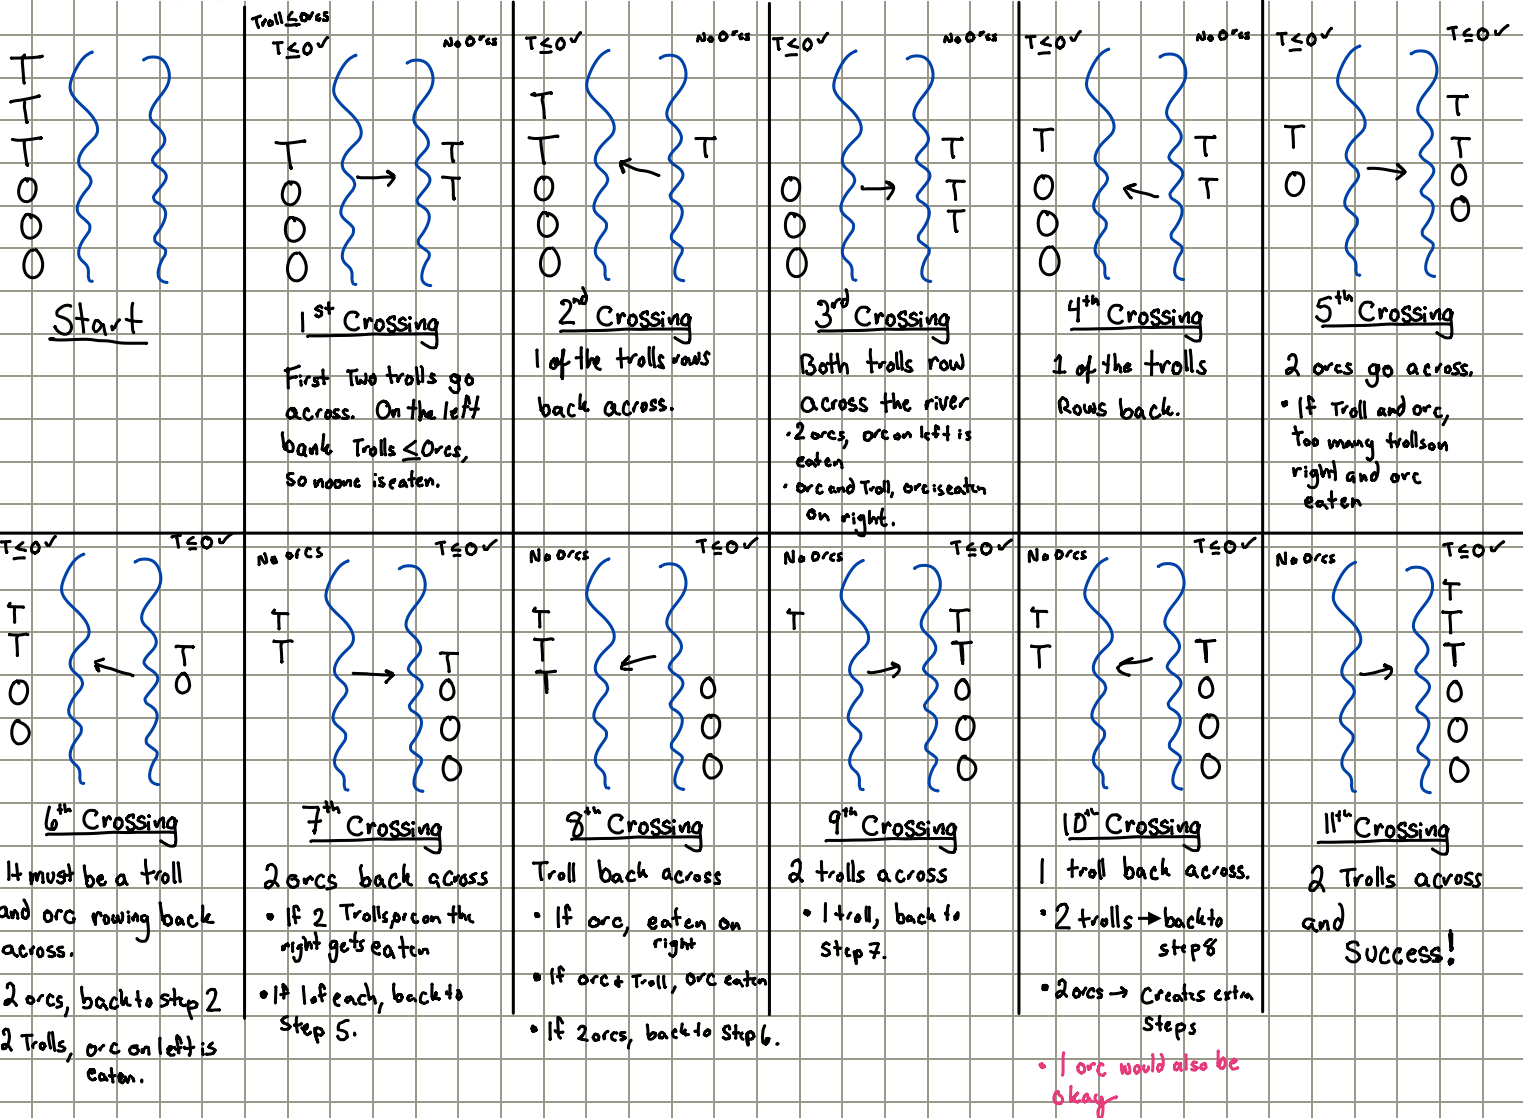 T
T
T
O
O
O
Start
Troll ≤ orcs
T ≤ O ✓
No Orcs
T
O
O
O
T
T
1st Crossing
First Two trolls go
across. On the left
bank Trolls ≤ Orcs,
so noone is eaten.
T ≤ O ✓
No Orcs
T
T
O
O
O
T
2nd Crossing
1 of the trolls rows
back across.
T ≤ O ✓
No Orcs
O
O
O
T
T
T
3rd Crossing
Both trolls row
across the river
• 2 orcs, orc on left is
eaten
• orc and Troll, orc is eaten
on right.
T ≤ O ✓
No Orcs
T
O
O
O
T
T
4th Crossing
1 of the trolls
Rows back.
T ≤ O ✓
T ≤ O ✓
T
O
T
T
O
O
5th Crossing
2 orcs go across.
• If Troll and orc,
too many trolls on
right and orc
eaten
T ≤ O ✓
T ≤ O ✓
T
T
O
O
T
O
6th Crossing
It must be a troll
and orc rowing back
across.
2 orcs, back to step 2
2 Trolls, orc on left is
eaten.
No orcs
T ≤ O ✓
T
T
T
O
O
O
7th Crossing
2 orcs back across
• If 2 Trolls, orc on the
right gets eaten
• If 1 of each, back to
Step 5.
No Orcs
T ≤ O ✓
T
T
T
O
O
O
8th Crossing
Troll back across
• If orc, eaten on
right
• If orc + Troll, orc eaten
• If 2 orcs, back to Step 6.
No Orcs
T ≤ O ✓
T
T
T
O
O
O
9th Crossing
2 trolls across
• 1 troll, back to
Step 7.
No Orcs
T ≤ O ✓
T
T
T
O
O
O
10th Crossing
1 troll back across.
• 2 trolls → back to
step 8
• 2 orcs → Creates extra
Steps
• 1 orc would also be
okay
No Orcs
T ≤ O ✓
T
T
T
O
O
O
11th Crossing
2 Trolls across
and
Success!